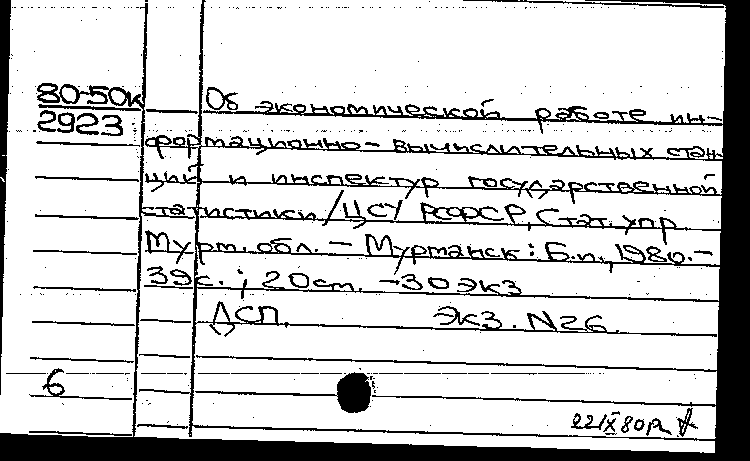 80-50к Об экономической работе ин-
2923 формационно-вычислительных стан-
ций и инспектур государственной
статистики /ЦСУ РСФСР, Стат. упр.
Мурм. обл. - Мурманск: Б.и., 1980.-
39с.; 20см. - 30экз
ДСП. Экз. N26.
6